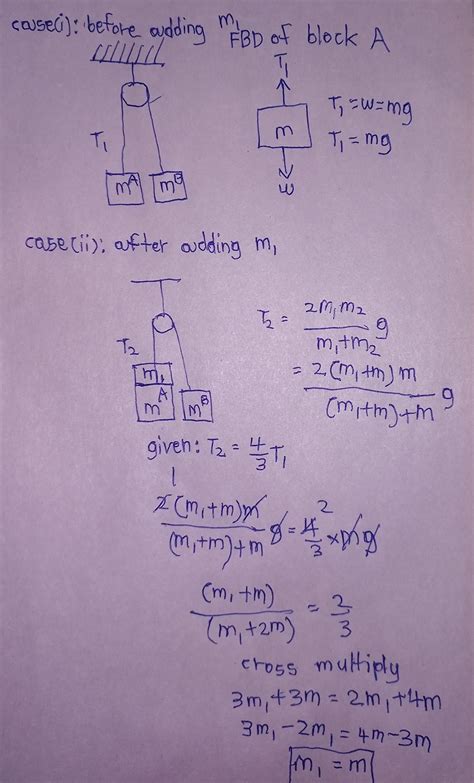 case(i): before adding m₁
FBD of block A
T₁
T₁ = w = mg
T₁ = mg
m
w
T₁
mᴬ mᴮ
case(ii): after adding m₁
T₂
m₁
mᴬ mᴮ
T₂ = 2m₁m₂ / m₁+m₂ g
= 2(m₁+m)m / (m₁+m)+m g
given: T₂ = 4/3 T₁
1 2
2(m₁+m)m / (m₁+m)+m g = 4/3 × mg
(m₁+m) / (m₁+2m) = 2/3
cross multiply
3m₁+3m = 2m₁+4m
3m₁-2m₁ = 4m-3m
m₁ = m